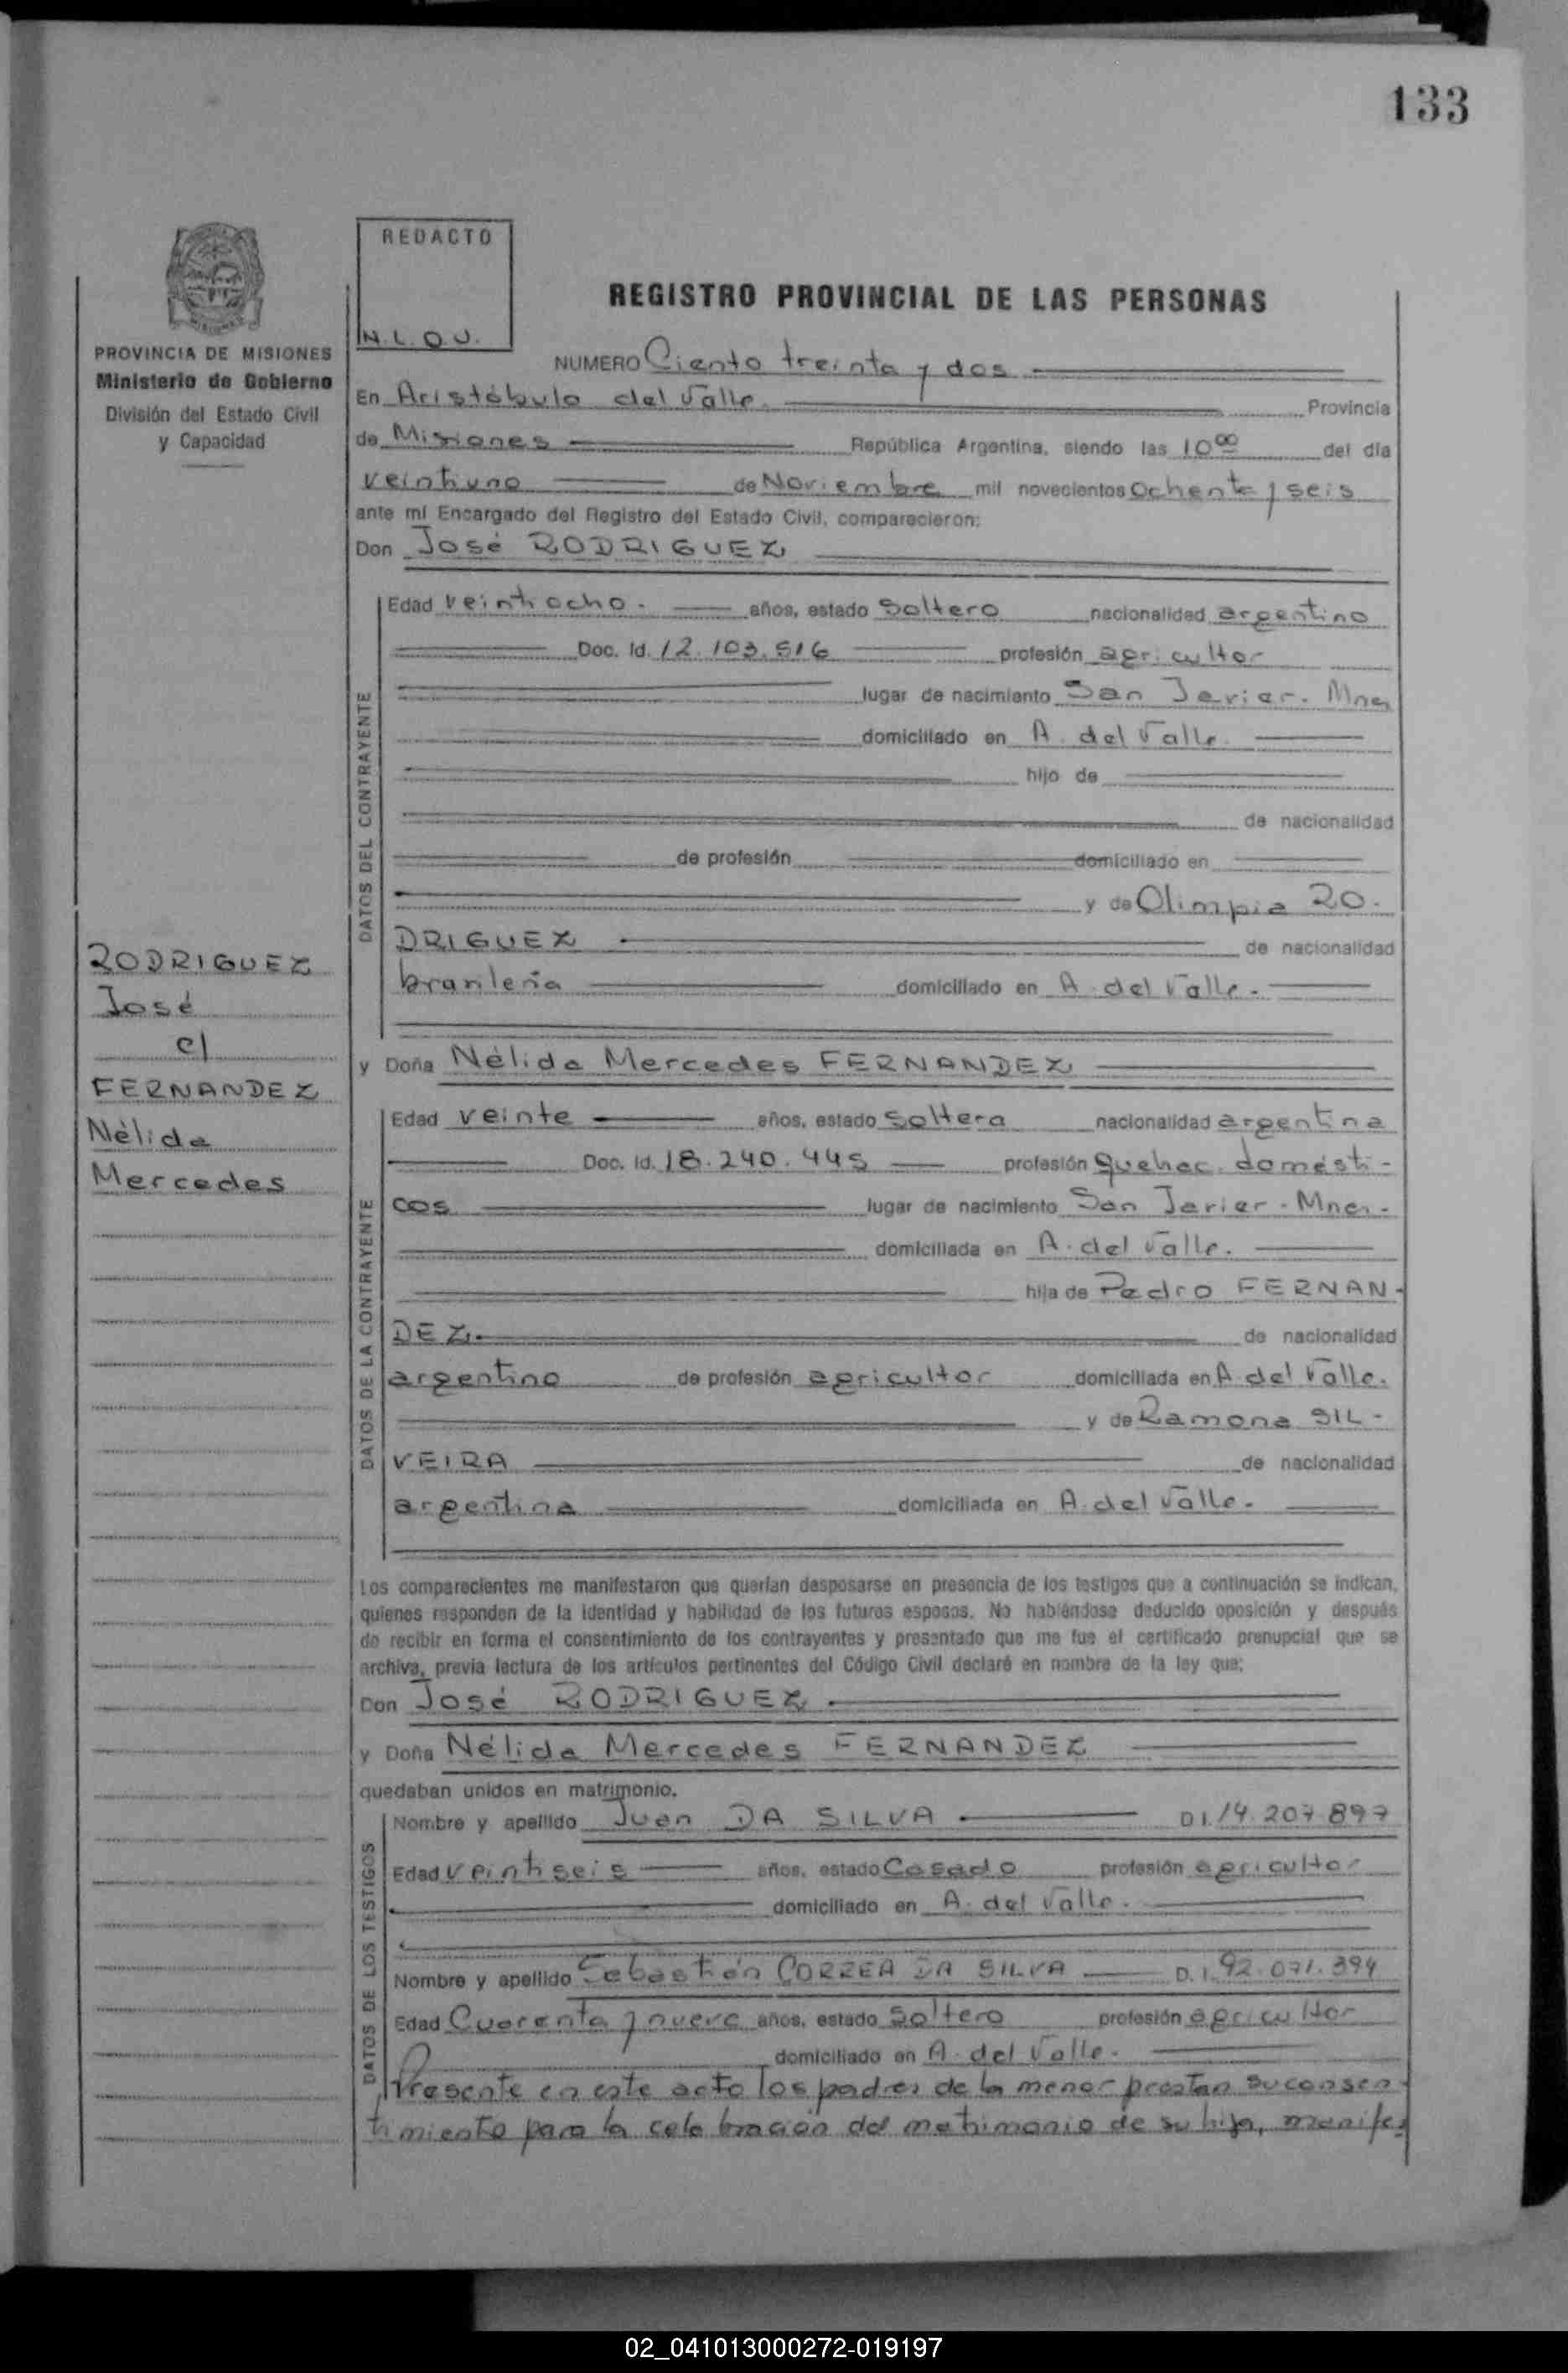 133
REDACTO
N. L. O U.
PROVINCIA DE MISIONES
Ministerio de Gobierno
División del Estado Civil
y Capacidad
REGISTRO PROVINCIAL DE LAS PERSONAS
NUMERO Ciento treinta y dos
En Aristóbulo del Valle. Provincia
de Misiones República Argentina, siendo las 10 00 del día
veintiuno de Noviembre mil novecientos Ochenta y seis
ante mí Encargado del Registro del Estado Civil, comparecieron:
Don José RODRIGUEZ
DATOS DEL CONTRAYENTE
Edad veintiocho. años, estado Soltero nacionalidad argentino
Doc. Id. 12.103.516 profesión agricultor
lugar de nacimiento San Javier. Mnes
domiciliado en A. del Valle.
hijo de
de nacionalidad
de profesión domiciliado en
y de Olimpia RO-
DRIGUEZ de nacionalidad
brasileña domiciliado en A. del Valle.
RODRIGUEZ
José
c/
FERNANDEZ
Nélida
Mercedes
y Doña Nélida Mercedes FERNANDEZ
DATOS DE LA CONTRAYENTE
Edad veinte años, estado Soltera nacionalidad argentina
Doc. Id. 18.240.445 profesión quehac. domésti-
cos lugar de nacimiento San Javier - Mnes.
domiciliada en A. del Valle.
hija de Pedro FERNAN-
DEZ. de nacionalidad
argentino de profesión agricultor domiciliada en A. del Valle.
y de Ramona SIL-
VEIRA de nacionalidad
argentina domiciliada en A. del Valle.
Los comparecientes me manifestaron que querían desposarse en presencia de los testigos que a continuación se indican,
quienes responden de la identidad y habilidad de los futuros esposos. No habiéndose deducido oposición y después
de recibir en forma el consentimiento de los contrayentes y presentado que me fue el certificado prenupcial que se
archiva, previa lectura de los artículos pertinentes del Código Civil declaré en nombre de la ley que;
Don José RODRIGUEZ.
y Doña Nélida Mercedes FERNANDEZ
quedaban unidos en matrimonio.
DATOS DE LOS TESTIGOS
Nombre y apellido Juan DA SILVA D I. 14.207.897
Edad veintiseis años, estado Casado profesión agricultor
domiciliado en A. del Valle.
Nombre y apellido Sebastián CORREA DA SILVA D. I. 92.071.394
Edad Cuarenta y nueve años, estado Soltero profesión agricultor
domiciliado en A. del Valle.
Presente en este acto los padres de la menor prestan su consen-
timiento para la celebración del matrimonio de su hija, manifes
02_041013000272-019197